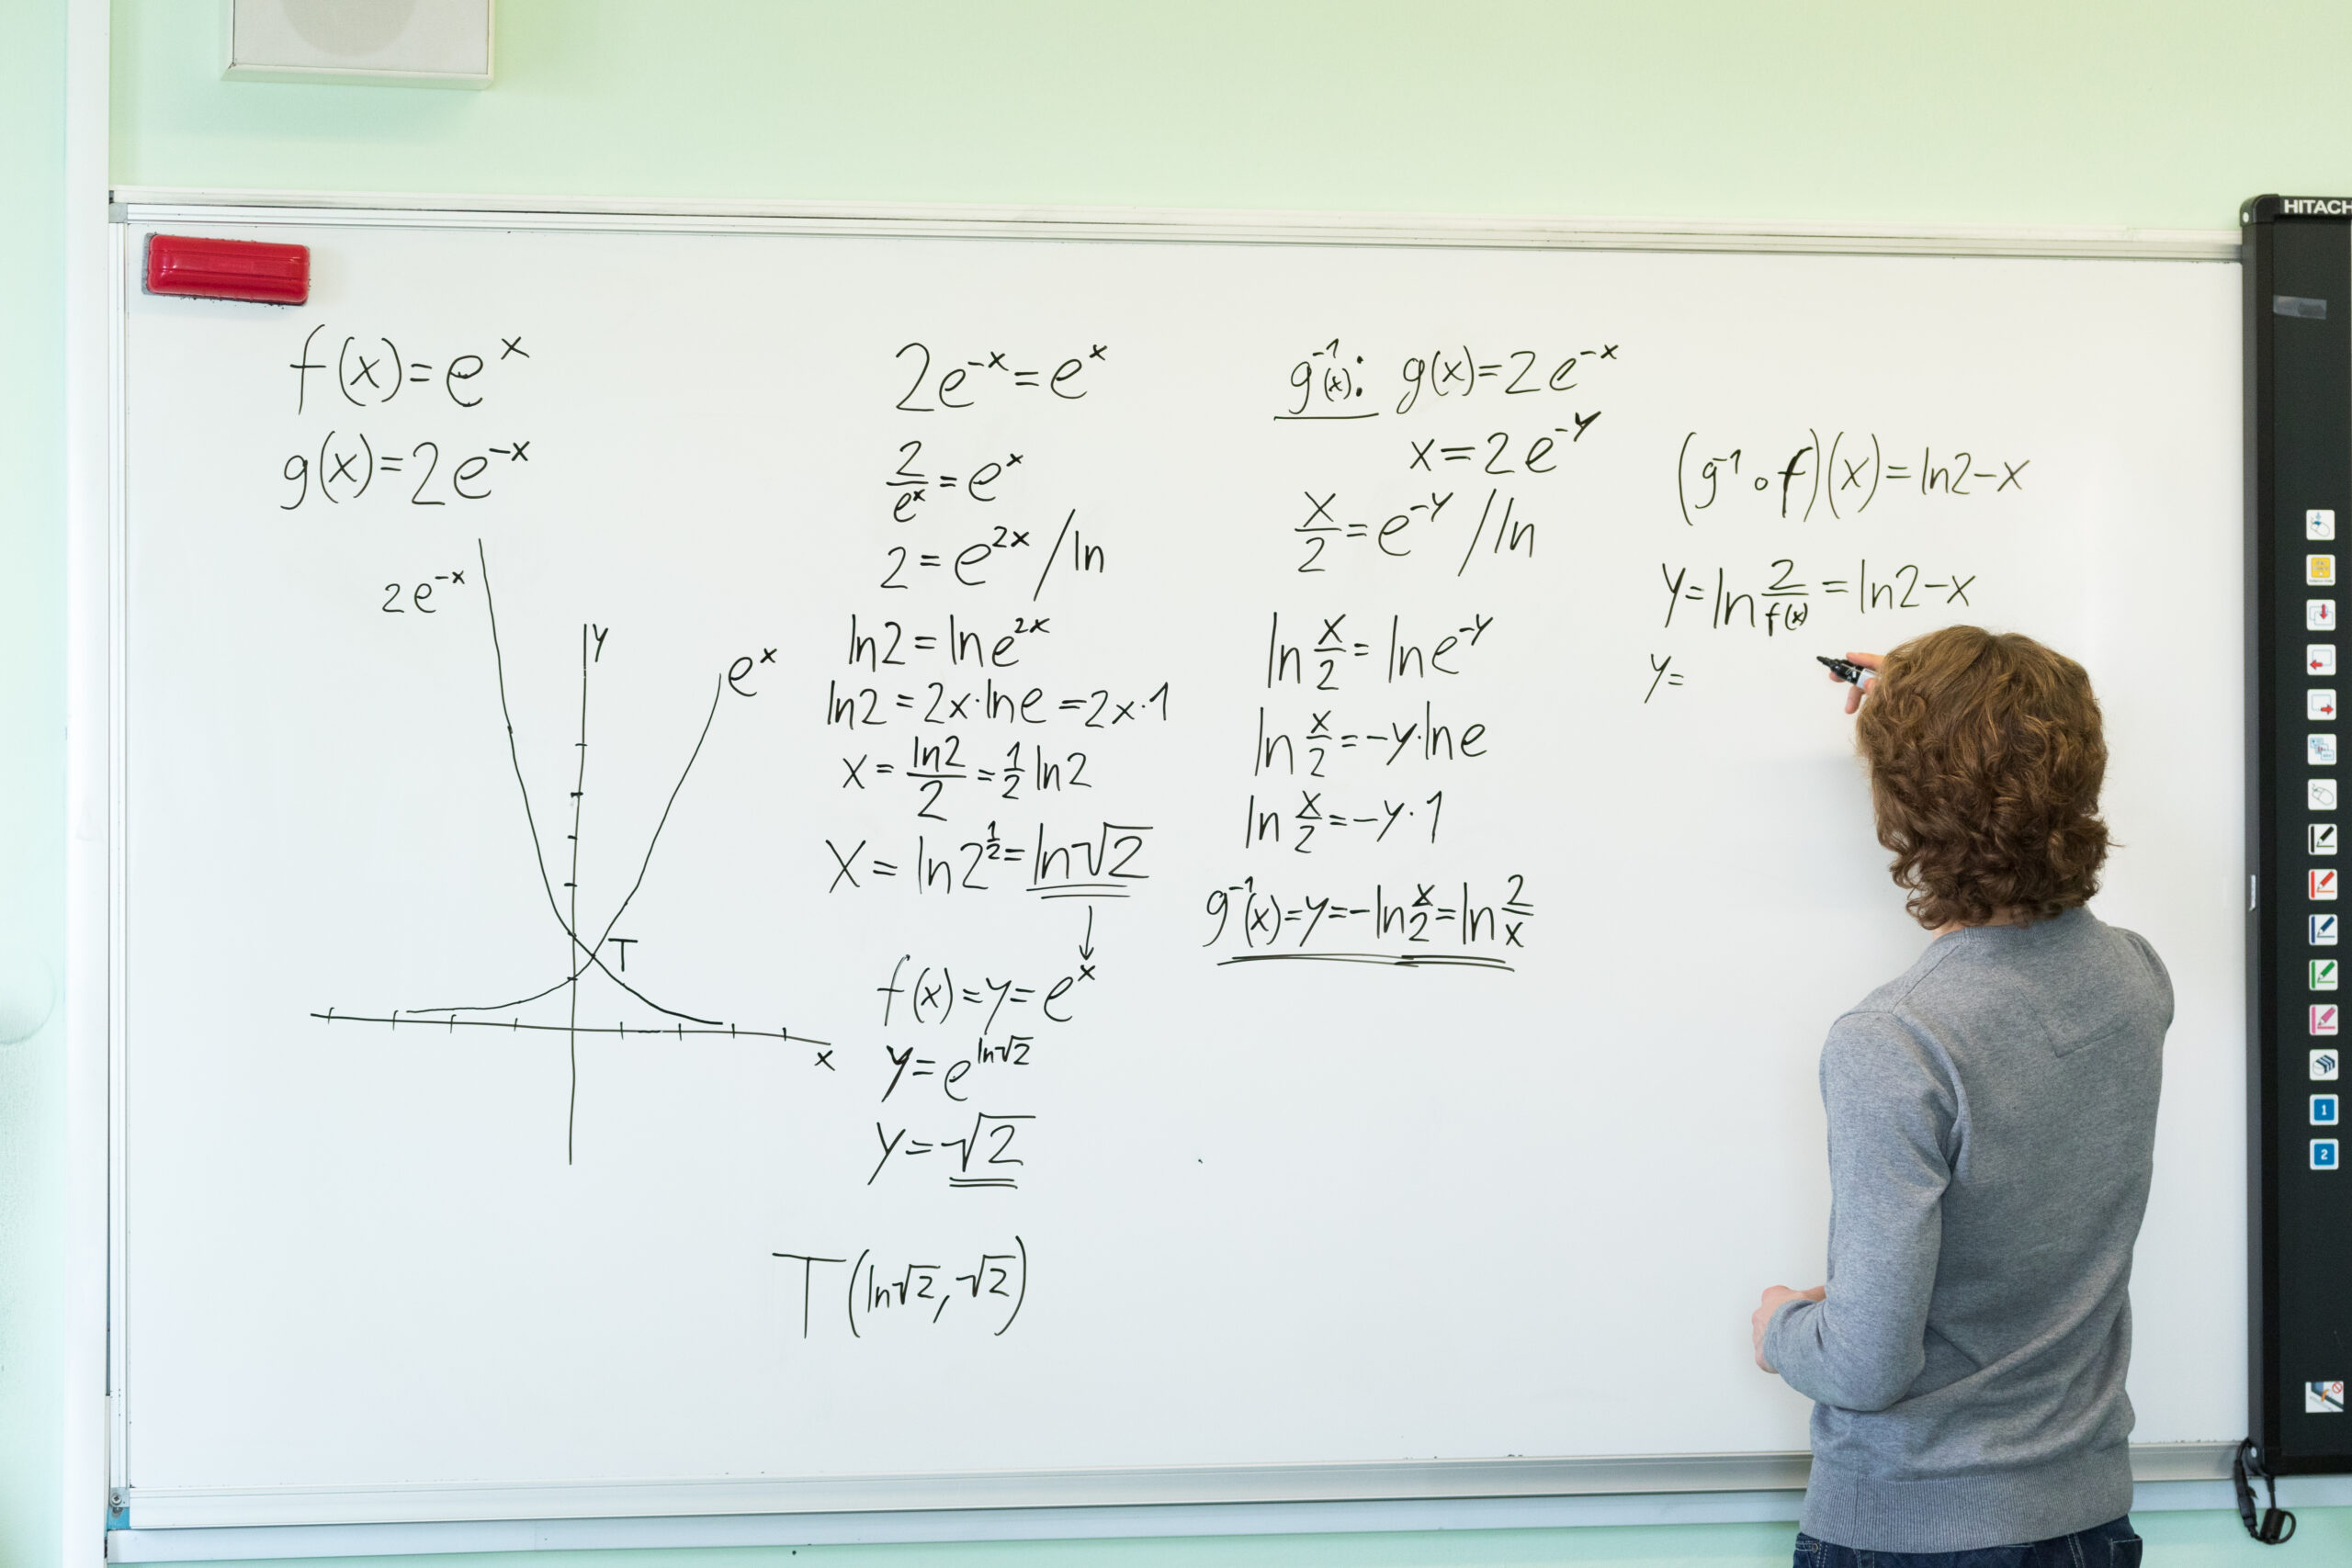 f(x)=e^x
g(x)=2e^-x
2e^-x
y
e^x
T
x
2e^-x=e^x
2/e^x=e^x
2=e^2x /ln
ln2=lne^2x
ln2=2x·lne=2x·1
x=ln2/2=1/2 ln2
x=ln2^1/2=ln√2
↓
f(x)=y=e^x
y=e^ln√2
y=√2
T(ln√2,√2)
g^-1(x): g(x)=2e^-x
x=2e^-y
x/2=e^-y //ln
ln x/2=lne^-y
ln x/2=-y·lne
ln x/2=-y·1
g^-1(x)=y=-ln x/2=ln 2/x
(g^-1∘f)(x)=ln2-x
y=ln 2/f(x)=ln2-x
y=
HITACH
1
2